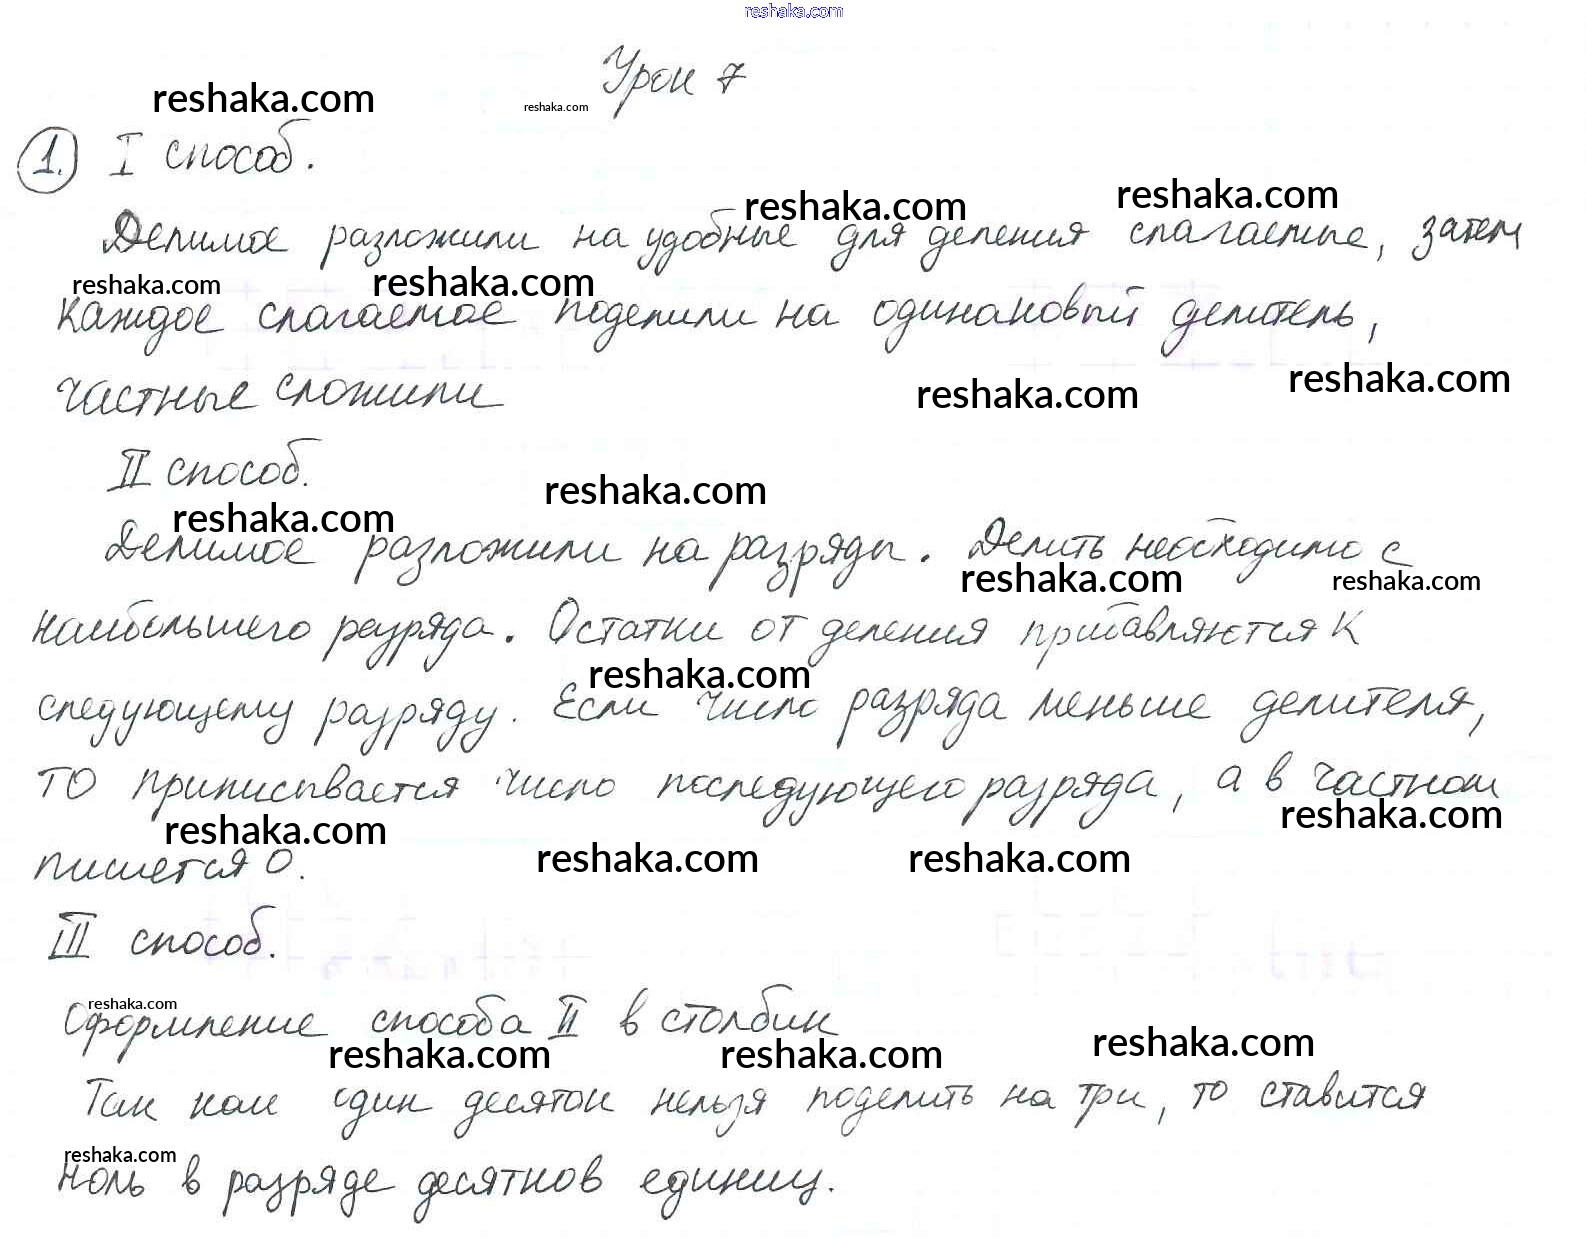 reshaka.com
Урок 7
reshaka.com reshaka.com
1. I способ.
reshaka.com reshaka.com
Делимое разложили на удобные для деления слагаемые, затем
reshaka.com reshaka.com
каждое слагаемое поделили на одинаковый делитель,
reshaka.com reshaka.com
частные сложили
II способ.
reshaka.com reshaka.com
Делимое разложили на разряды. Делить необходимо с
reshaka.com reshaka.com
наибольшего разряда. Остатки от деления прибавляются к
reshaka.com
следующему разряду. Если число разряда меньше делителя,
то приписывается число последующего разряда, а в частном
reshaka.com reshaka.com reshaka.com reshaka.com
пишется 0.
III способ.
reshaka.com
Оформление способа II в столбик
reshaka.com reshaka.com reshaka.com
Так как один десяток нельзя поделить на три, то ставится
reshaka.com
ноль в разряде десятков единиц.